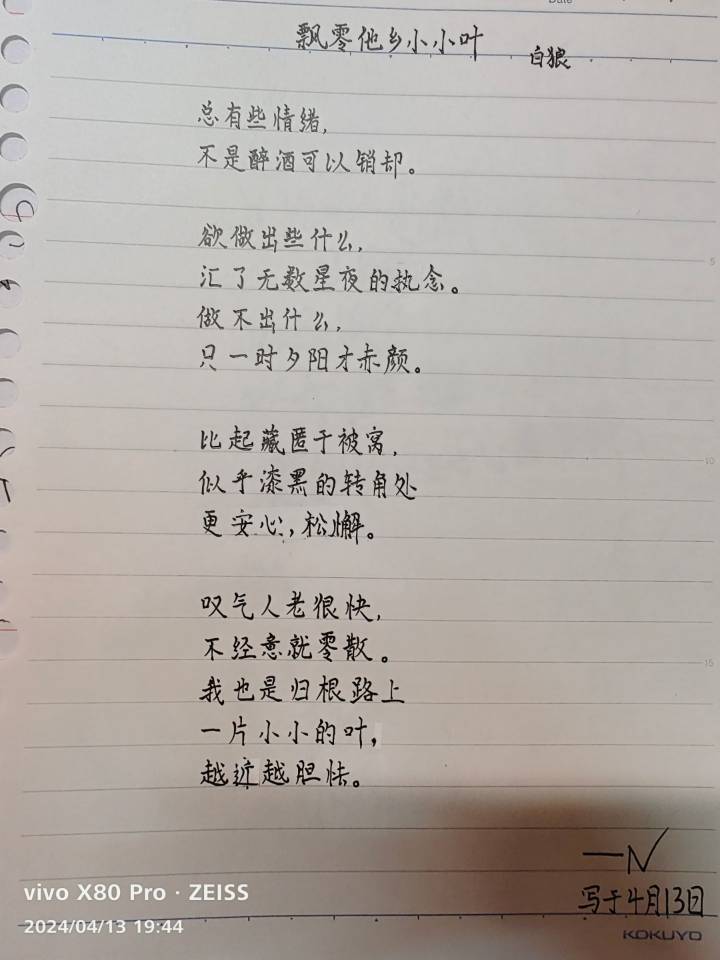 Date
飘零他乡小小叶
白狼
总有些情绪,
不是醉酒可以销却。
欲做出些什么,
汇了无数星夜的执念。
做不出什么,
只一时夕阳才赤颜。
比起藏匿于被窝,
似乎漆黑的转角处
更安心,松懈。
叹气人老很快,
不经意就零散。
我也是归根路上
一片小小的叶,
越近越胆怯。
—N
写于4月13日
5
10
15
KOKUYO
vivo X80 Pro · ZEISS
2024/04/13 19:44